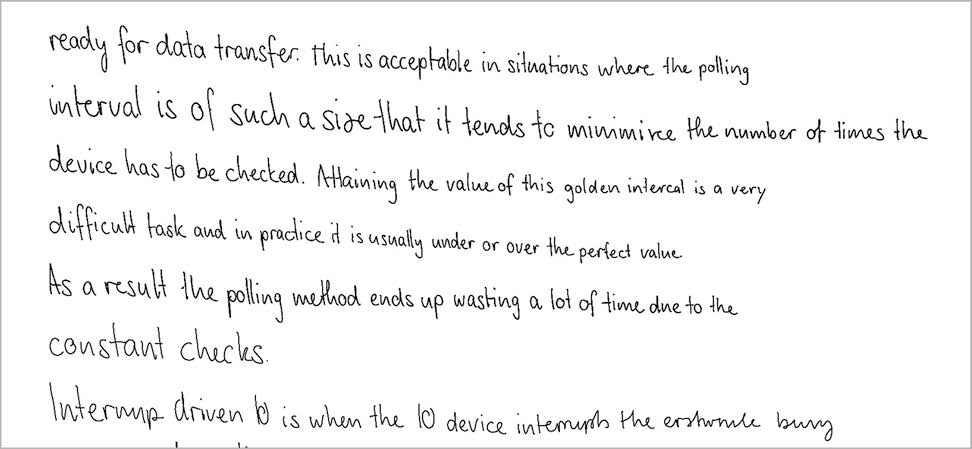 ready for data transfer. This is acceptable in situations where the polling
interval is of such a size that it tends to minimize the number of times the
device has to be checked. Attaining the value of this golden intercal is a very
difficult task and in practice it is usually under or over the perfect value.
As a result the polling method ends up wasting a lot of time due to the
constant checks.
Interrup driven IO is when the IO device interrupts the busy